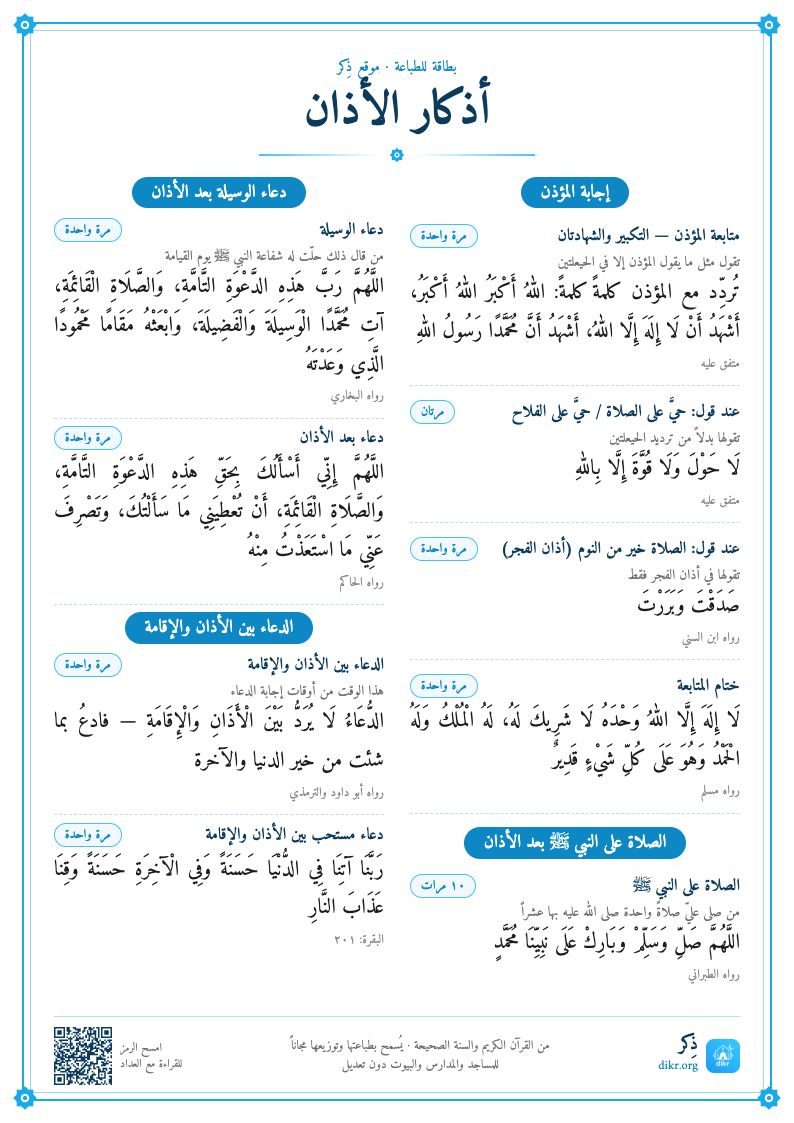 بطاقة للطباعة · موقع ذِكر
أذكار الأذان
إجابة المؤذن
متابعة المؤذن — التكبير والشهادتان
مرة واحدة
تقول مثل ما يقول المؤذن إلا في الحيعلتين
تُردِّد مع المؤذن كلمةً كلمةً: اللهُ أَكْبَرُ اللهُ أَكْبَرُ،
أَشْهَدُ أَنْ لَا إِلَهَ إِلَّا اللهُ، أَشْهَدُ أَنَّ مُحَمَّدًا رَسُولُ اللهِ
متفق عليه
عند قول: حيَّ على الصلاة / حيَّ على الفلاح
مرتان
تقولها بدلاً من ترديد الحيعلتين
لَا حَوْلَ وَلَا قُوَّةَ إِلَّا بِاللهِ
متفق عليه
عند قول: الصلاة خير من النوم (أذان الفجر)
مرة واحدة
تقولها في أذان الفجر فقط
صَدَقْتَ وَبَرَرْتَ
رواه ابن السني
ختام المتابعة
مرة واحدة
لَا إِلَهَ إِلَّا اللهُ وَحْدَهُ لَا شَرِيكَ لَهُ، لَهُ الْمُلْكُ وَلَهُ
الْحَمْدُ وَهُوَ عَلَى كُلِّ شَيْءٍ قَدِيرٌ
رواه مسلم
الصلاة على النبي ﷺ بعد الأذان
الصلاة على النبي ﷺ
١٠ مرات
من صلى عليّ صلاةً واحدة صلى الله عليه بها عشراً
اللَّهُمَّ صَلِّ وَسَلِّمْ وَبَارِكْ عَلَى نَبِيِّنَا مُحَمَّدٍ
رواه الطبراني
دعاء الوسيلة بعد الأذان
دعاء الوسيلة
مرة واحدة
من قال ذلك حلّت له شفاعة النبي ﷺ يوم القيامة
اللَّهُمَّ رَبَّ هَذِهِ الدَّعْوَةِ التَّامَّةِ، وَالصَّلَاةِ الْقَائِمَةِ،
آتِ مُحَمَّدًا الْوَسِيلَةَ وَالْفَضِيلَةَ، وَابْعَثْهُ مَقَامًا مَحْمُودًا
الَّذِي وَعَدْتَهُ
رواه البخاري
دعاء بعد الأذان
مرة واحدة
اللَّهُمَّ إِنِّي أَسْأَلُكَ بِحَقِّ هَذِهِ الدَّعْوَةِ التَّامَّةِ،
وَالصَّلَاةِ الْقَائِمَةِ، أَنْ تُعْطِيَنِي مَا سَأَلْتُكَ، وَتَصْرِفَ
عَنِّي مَا اسْتَعَذْتُ مِنْهُ
رواه الحاكم
الدعاء بين الأذان والإقامة
الدعاء بين الأذان والإقامة
مرة واحدة
هذا الوقت من أوقات إجابة الدعاء
الدُّعَاءُ لَا يُرَدُّ بَيْنَ الْأَذَانِ وَالْإِقَامَةِ — فادعُ بما
شئت من خير الدنيا والآخرة
رواه أبو داود والترمذي
دعاء مستحب بين الأذان والإقامة
مرة واحدة
رَبَّنَا آتِنَا فِي الدُّنْيَا حَسَنَةً وَفِي الْآخِرَةِ حَسَنَةً وَقِنَا
عَذَابَ النَّارِ
البقرة: ٢٠١
ذِكر
dikr.org
dikr
من القرآن الكريم والسنة الصحيحة · يُسمح بطباعتها وتوزيعها مجاناً
للمساجد والمدارس والبيوت دون تعديل
امسح الرمز
للقراءة مع العداد